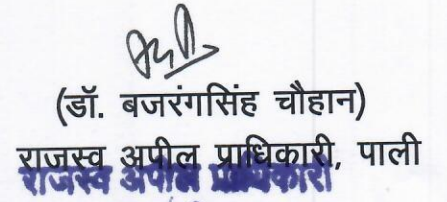 (डॉ. बजरंगसिंह चौहान)
राजस्व अपील प्राधिकारी, पाली
राजस्व अपील प्राधिकारी